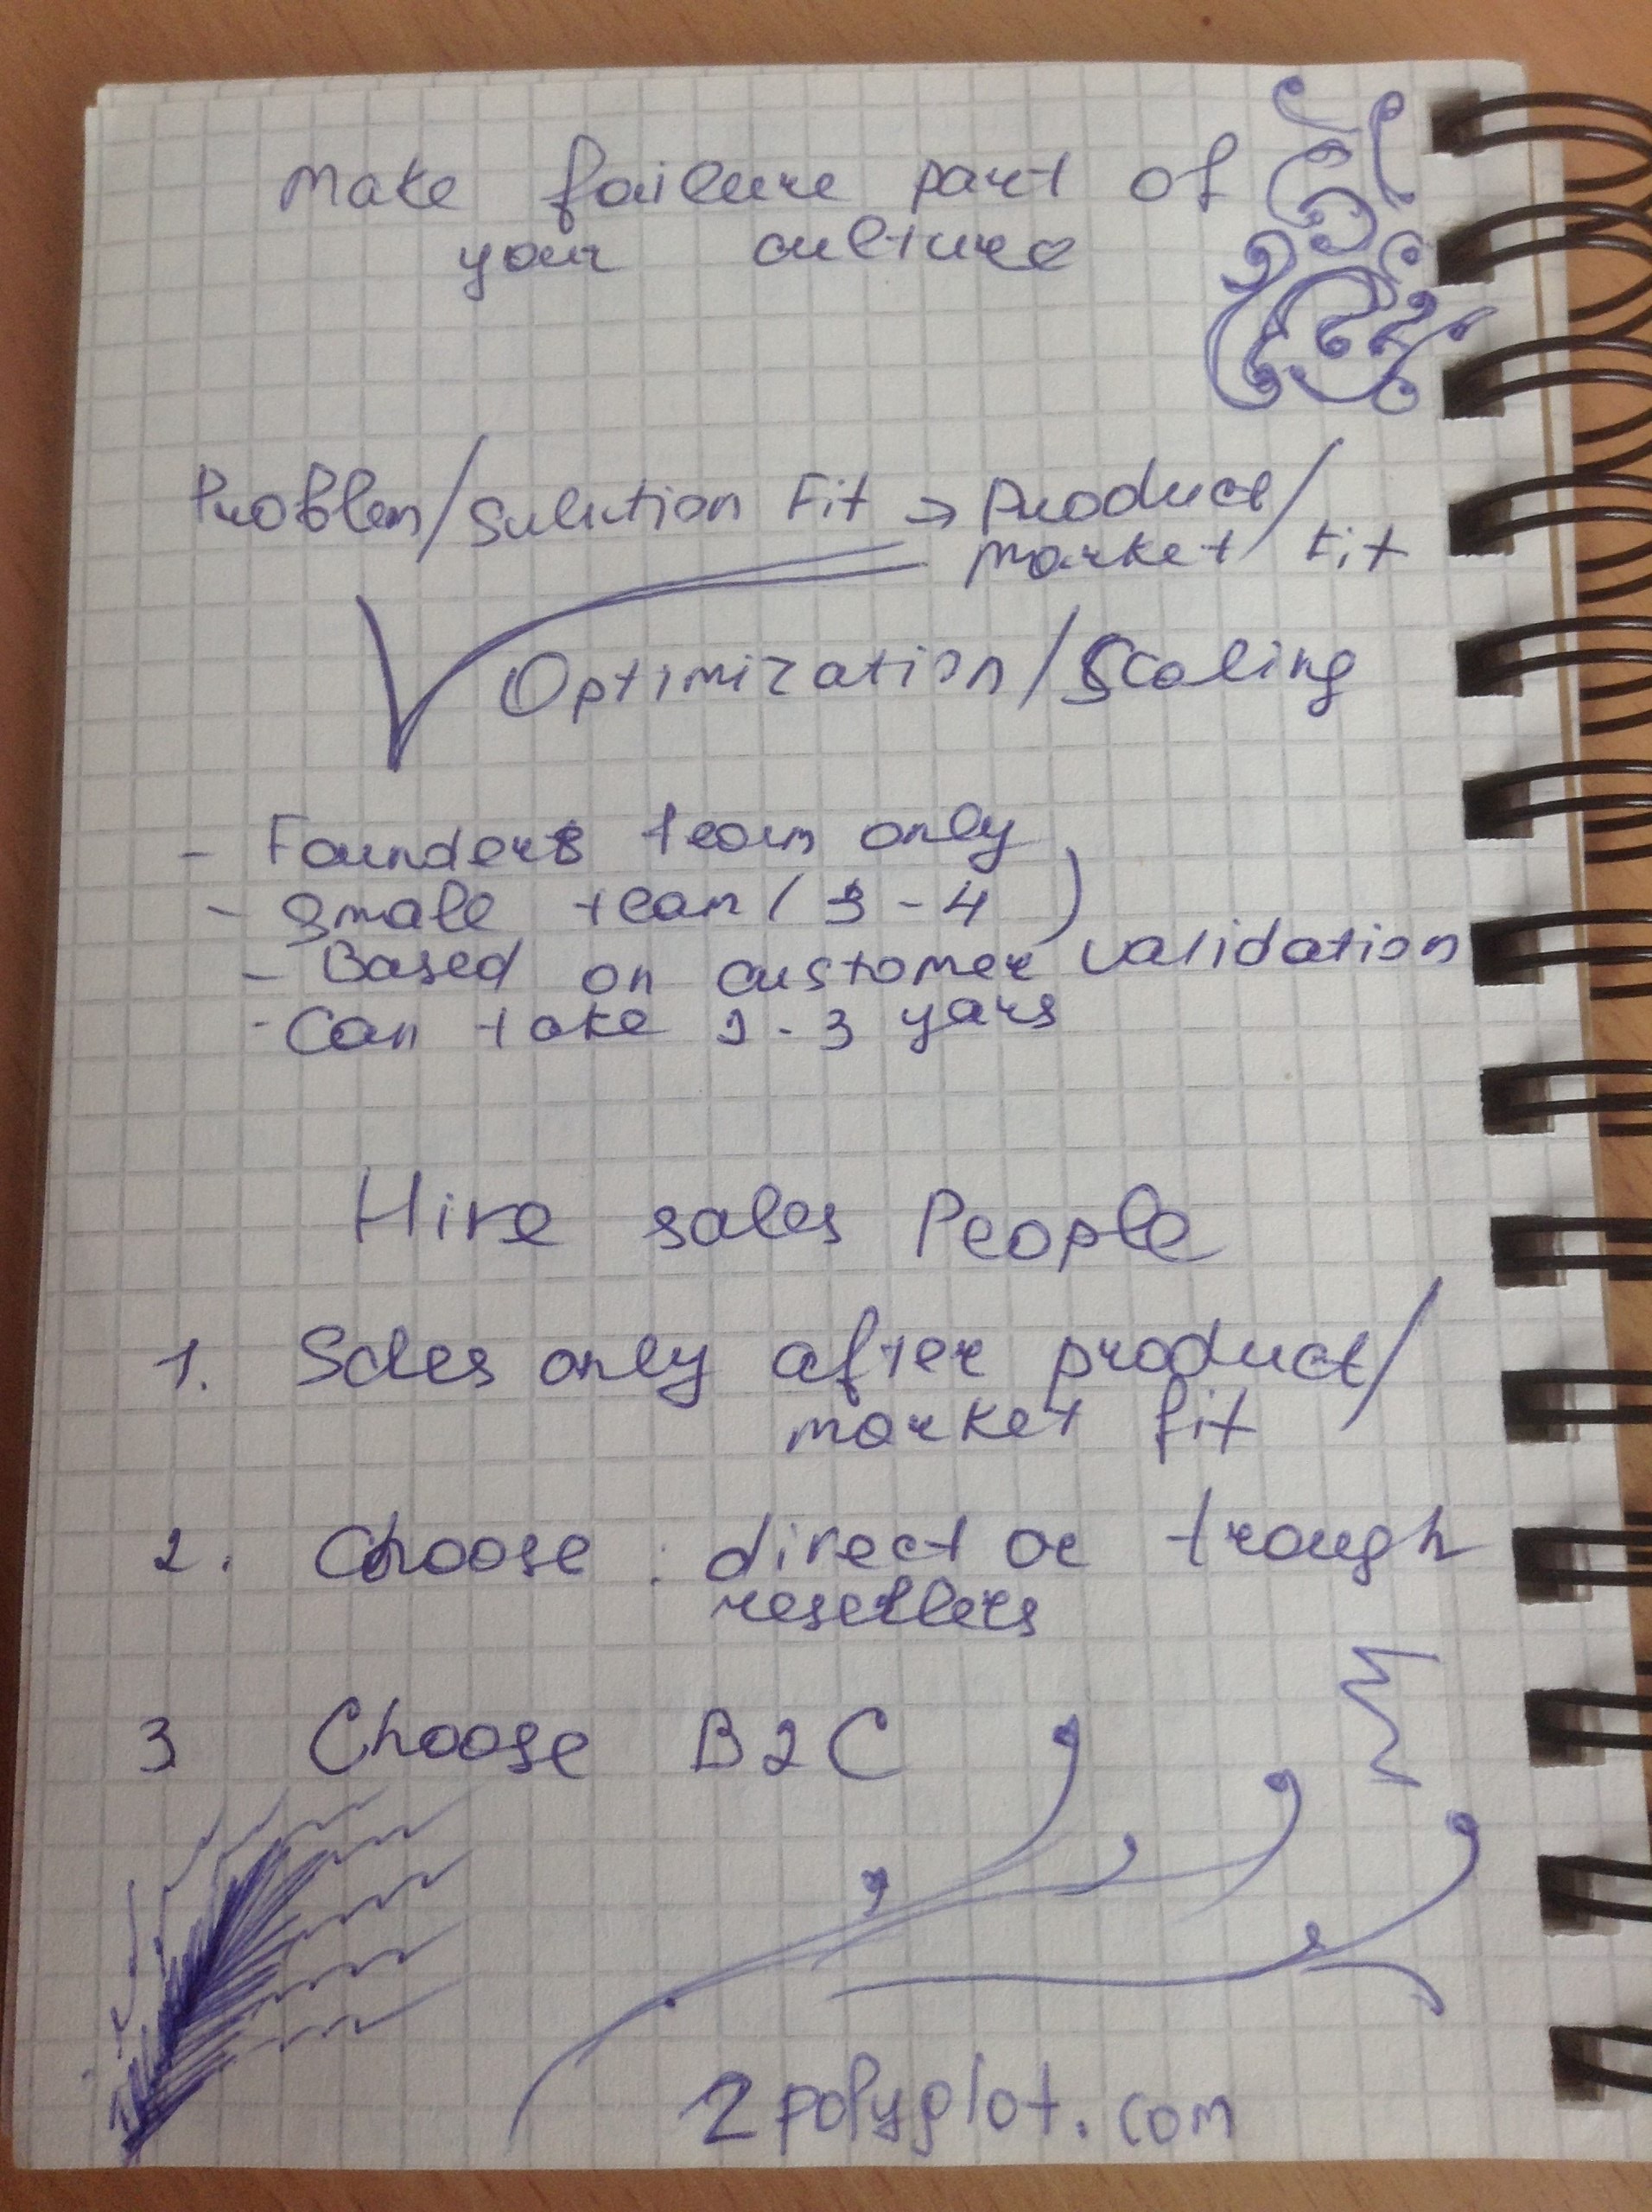 Make failure part of
your culture
Problem/Sulution Fit → Product/
market/ Fit
Optimization/Scaling
- Founders team only
- Small team ( 3 - 4 )
- Based on customer validation
- Can take 2 - 3 yars
Hire sales People
1. Sales only after product/
market fit
2. Choose : direct or trough
resellers
3 Choose B2C
2polyglot.com